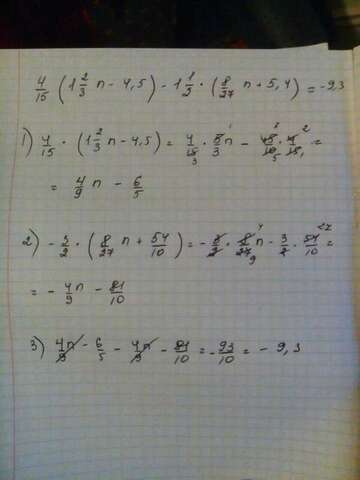 4/15 (1 2/3 n - 4,5) - 1 1/2 · (8/27 n + 5,4) = -9,3
1) 4/15 · (1 2/3 n - 4,5) = 4/15 · 5/3 n - 45/10 · 4/15 =
= 4/9 n - 6/5
2) - 3/2 · (8/27 n + 54/10) = - 3/2 · 8/27 n - 3/2 · 54/10 =
= - 4/9 n - 81/10
3) 4n/9 - 6/5 - 4n/9 - 81/10 = - 93/10 = - 9,3